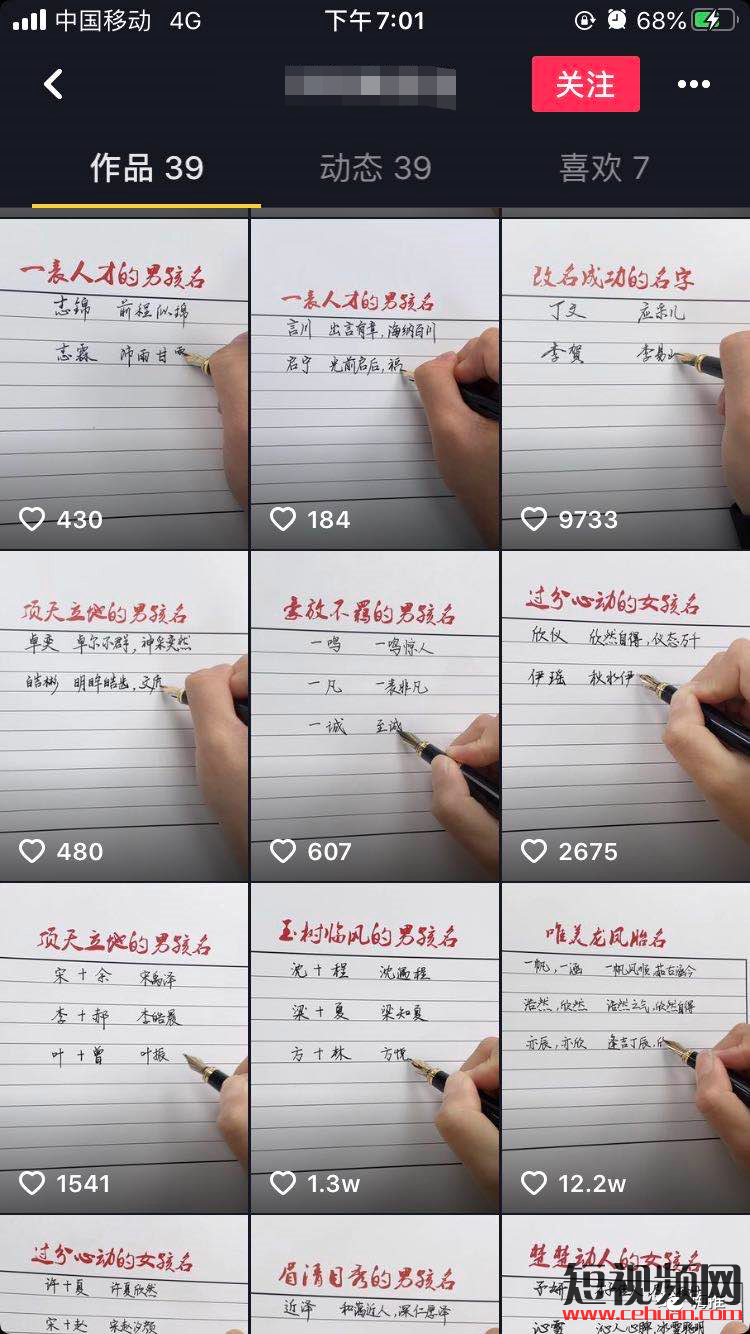 中国移动 4G 下午7:01 68%
关注
作品 39 动态 39 喜欢 7
一表人才的男孩名
志锦 前程似锦
志霖 沛雨甘
430
一表人才的男孩名
言川 出言有章,海纳百川
启宁 光前启后,福
184
改名成功的名字
丁文 应采儿
李贺 李易
9733
顶天立地的男孩名
卓奕 卓尔不群,神采奕然
皓彬 明眸皓齿,文质
480
豪放不羁的男孩名
一鸣 一鸣惊人
一凡 一表非凡
一诚 至诚
607
过分心动的女孩名
欣仪 欣然自得,仪态万千
伊瑶 秋水伊
2675
顶天立地的男孩名
宋+余 宋禹泽
李+郝 李皓晨
叶+曾 叶振
1541
玉树临风的男孩名
沈+程 沈涵程
梁+夏 梁知夏
方+林 方悦
1.3w
唯美龙凤胎名
一帆,一涵 一帆风顺,茹古涵今
浩然,欣然 浩然之气,欣然自得
亦辰,亦欣 逢吉丁辰,欣
12.2w
过分心动的女孩名
许+夏 许夏欣然
宋+赵 宋赵汐颜
眉清目秀的男孩名
近泽 和蔼近人,深仁厚泽
楚楚动人的女孩名
子妍
沁雪 沁人心脾,冰雪聪明
短视频网
www.cehuan.com